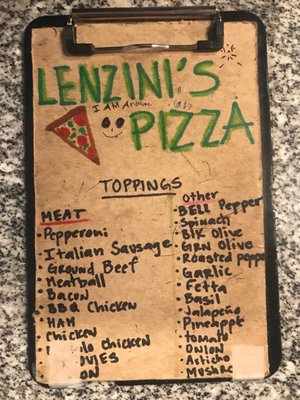 LENZINI'S
I AM
PIZZA
TOPPINGS
MEAT
Pepperoni
Italian Sausage
Ground Beef
Meatball
Bacon
BBQ Chicken
HAM
Chicken
lo Chicken
OVIES
ON
Other
BELL Pepper
Spinach
Blk Olive
GRN Olive
Roasted peppe
Garlic
Fetta
Basil
Jalapeño
Tomato
ONION
Articho
Mushro